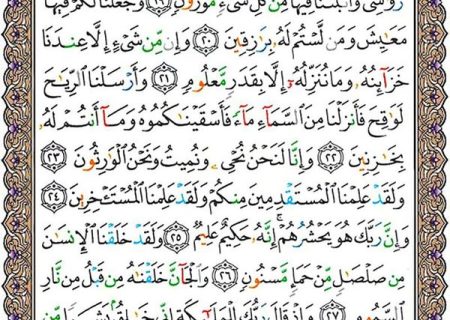 رَوَٰسِىَ وَأَنۢبَتْنَا فِيهَا مِن كُلِّ شَىْءٍ مَّوْزُونٍ ١٩ وَجَعَلْنَا لَكُمْ فِيهَا
مَعَٰيِشَ وَمَن لَّسْتُمْ لَهُۥ بِرَٰزِقِينَ ٢٠ وَإِن مِّن شَىْءٍ إِلَّا عِندَنَا
خَزَآئِنُهُۥ وَمَا نُنَزِّلُهُۥٓ إِلَّا بِقَدَرٍ مَّعْلُومٍ ٢١ وَأَرْسَلْنَا ٱلرِّيَٰحَ
لَوَٰقِحَ فَأَنزَلْنَا مِنَ ٱلسَّمَآءِ مَآءً فَأَسْقَيْنَٰكُمُوهُ وَمَآ أَنتُمْ لَهُۥ
بِخَٰزِنِينَ ٢٢ وَإِنَّا لَنَحْنُ نُحْىِۦ وَنُمِيتُ وَنَحْنُ ٱلْوَٰرِثُونَ ٢٣
وَلَقَدْ عَلِمْنَا ٱلْمُسْتَقْدِمِينَ مِنكُمْ وَلَقَدْ عَلِمْنَا ٱلْمُسْتَـْٔخِرِينَ ٢٤
وَإِنَّ رَبَّكَ هُوَ يَحْشُرُهُمْ ۚ إِنَّهُۥ حَكِيمٌ عَلِيمٌ ٢٥ وَلَقَدْ خَلَقْنَا ٱلْإِنسَٰنَ
مِن صَلْصَٰلٍ مِّنْ حَمَإٍ مَّسْنُونٍ ٢٦ وَٱلْجَآنَّ خَلَقْنَٰهُ مِن قَبْلُ مِن نَّارِ
ٱلسَّمُومِ ٢٧ وَإِذْ قَالَ رَبُّكَ لِلْمَلَٰٓئِكَةِ إِنِّى خَٰلِقٌۢ بَشَرًا مِّن